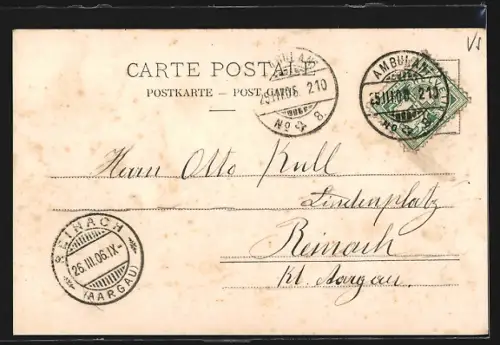 V5
CARTE POSTALE
POSTKARTE — POST CARD
AMBULANT
25.III.06. 210
No 8.
AMBULANT
25.III.06. 210
No
Herrn Otto Kull
Lindenplatz
Reinach
Kt. Aargau.
REINACH
26.III.06.IX-
(AARGAU)